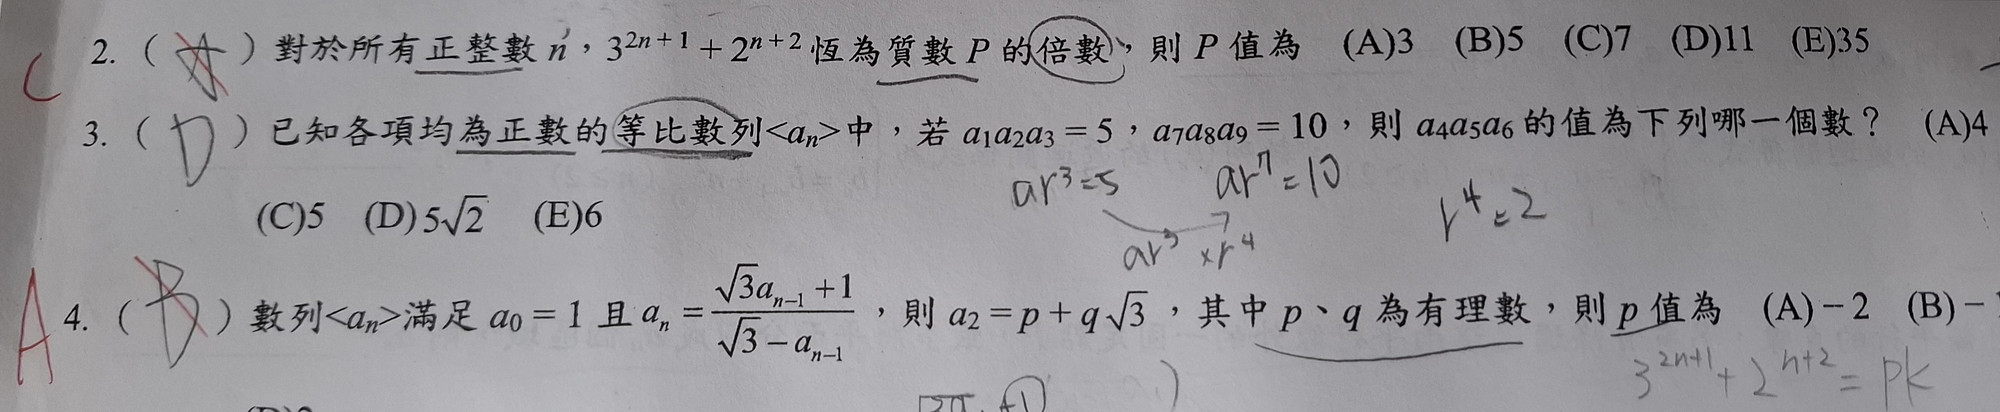 C 2. ( A ) 對於所有正整數 n，3^{2n+1} + 2^{n+2} 恆為質數 P 的倍數，則 P 值為 (A)3 (B)5 (C)7 (D)11 (E)35
3. ( D ) 已知各項均為正數的等比數列<a_n>中，若 a_1a_2a_3 = 5，a_7a_8a_9 = 10，則 a_4a_5a_6 的值為下列哪一個數？ (A)4
ar^3=5 ar^7=10 r^4=2
(C)5 (D)5√2 (E)6
ar^3 × r^4
A 4. ( B ) 數列<a_n>滿足 a_0 = 1 且 a_n = (√3a_{n-1} + 1)/(√3 − a_{n-1})，則 a_2 = p + q√3，其中 p、q 為有理數，則 p 值為 (A)−2 (B)−
3^{2n+1} + 2^{n+2} = pk